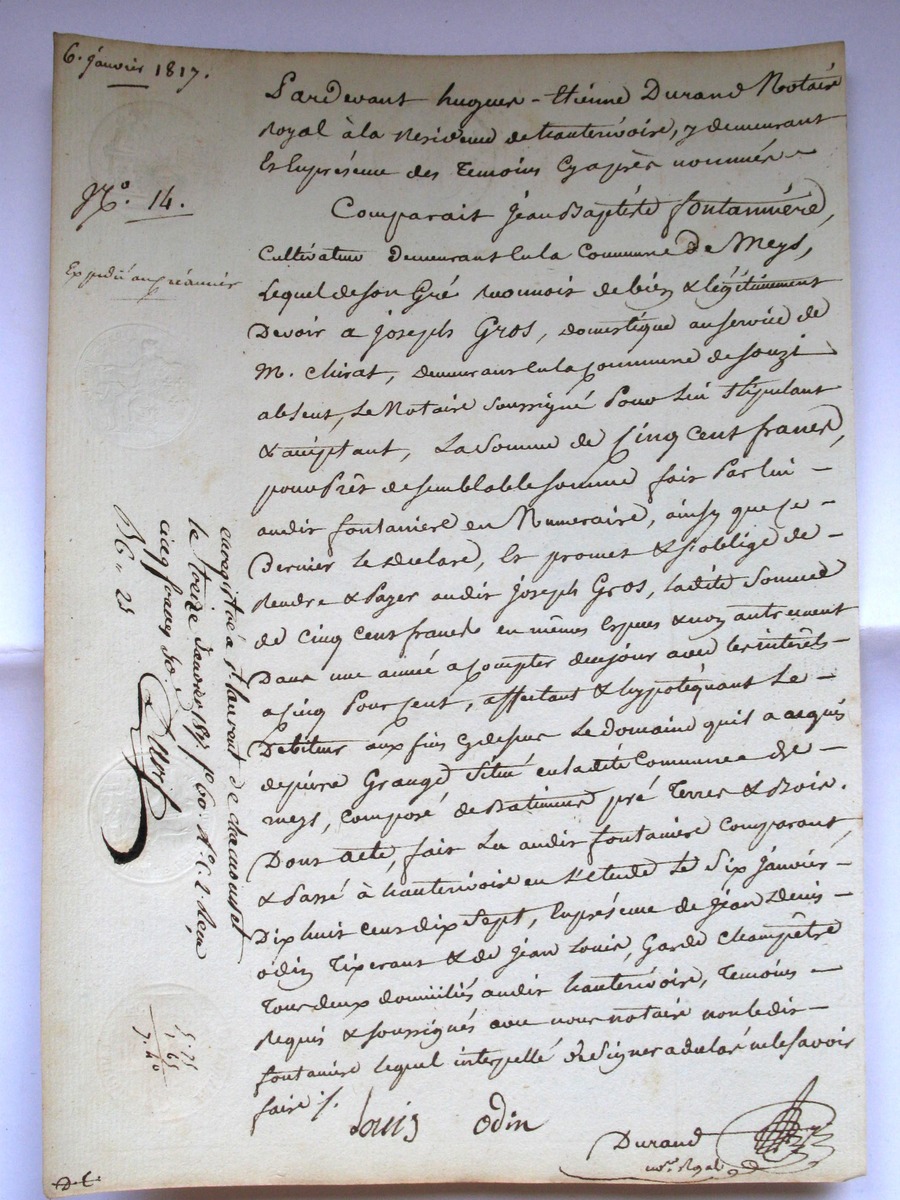 6. Janvier 1817.
N.° 14.
Expedié au créancier
Pardevant hugues-Etienne Durand Notaire
Royal à la Residence de hauterivoire, y demeurant
Et Enpresence des Temoins Cyaprès nommés ~
Comparait Jean Baptiste fontanniere,
Cultivateur Demeurant En la Commune de Meys,
Lequel de son Gré reconnoit de bien & légitimement
Devoir a Joseph Gros, domestique au service de
M. Chirat, demeurant En la Commune de Souzi
absent, Le Notaire Soussigné Pour lui Stipulant
& acceptant, La Somme de Cinq Cent francs,
pour Prêt de semblable somme fait Par lui –
audit fontaniere en Numeraire, ainsy que ce –
Dernier le declare, Et promet & s'oblige de –
Rendre & Payer audit Joseph Gros, ladite Somme
de Cinq Cent francs en mêmes Especes & non autrement
Dans une année a Compter de ce jour avec les intérêts –
a Cinq Pour Cent, affectant & hypotéquant Le –
Debiteur aux fins Cydessus Le domaine qu'il a acquis
de pierre Grange Situé en ladite Commune de –
meys, Composé de Batiments pré Terres & Bois.
Dont acte, fait Lu audit fontaniere Comparant,
& Passé à hauterivoire en L'Etude Le Six Janvier –
Dix huit cent dix Sept, En présence de Jean Denis –
odin Tixerant & de Jean Louis, Garde Champêtre
Tous deux domiciliés audit hauterivoire, Temoins –
Requis & Soussignés avec nous notaire non ledit –
fontaniere lequel interpellé de Signer a declaré ne le Savoir
faire ./.
Louis Odin
Durand
not.re Royal
enregistré à St. laurent de chamousset
le treize Janvier 1817 f.° 60. R.° C. 2. Reçu
cinq francs 50.
5. 75
1. 65
7. 40